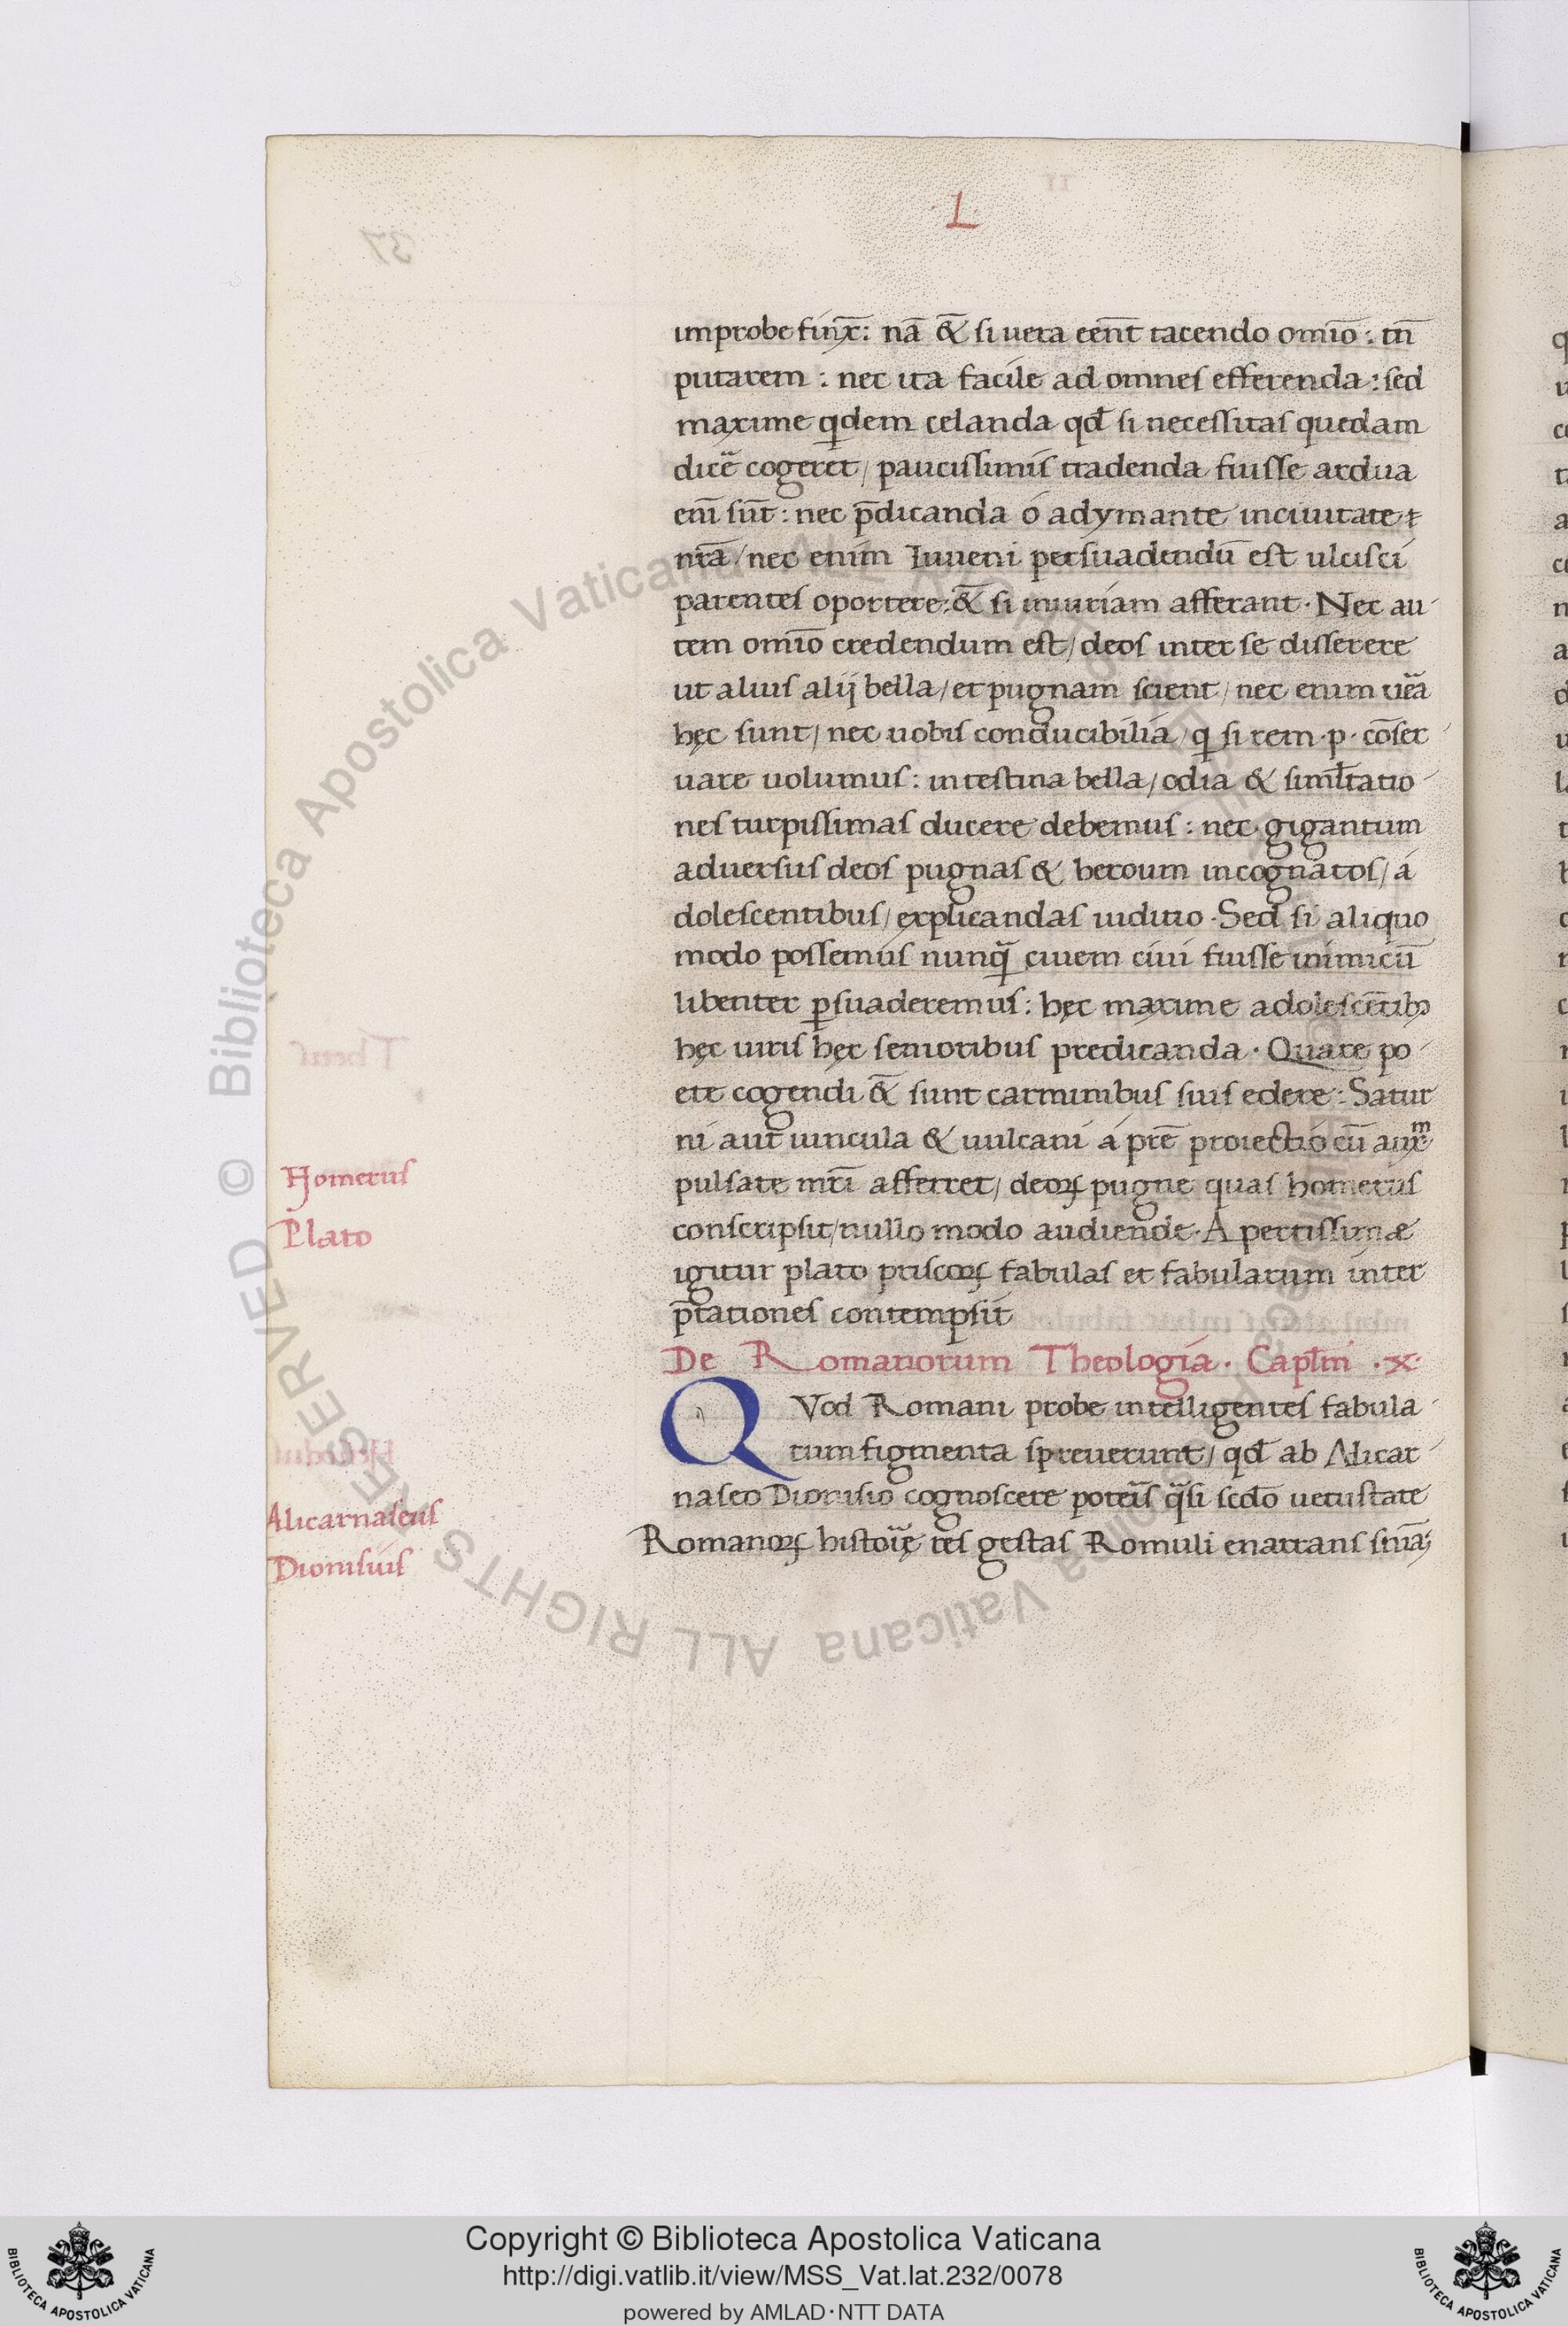 L
improbe finx̄: nā &̄ si uera eēnt tacendo omīo: tn̄
putarem: nec ita facile ad omnes efferenda: sed
maxime qdem celanda qđ si necessitas quedam
dicē cogeret/ paucissimis tradenda fuisse ardua
enī sūt: nec p̄dicanda ó adymante inciuitate
nrā/ nec enim Iuueni persuadendū est ulcisci
parentes oportere: &̄ si iniuriam afferant. Nec au
tem omīo credendum est/ deos inter se disserere
ut alius alij bella/ et pugnam scient/ nec enim uēa
hęc sunt/ nec uobis conducibilia/ q si rem.p. cōser
uare uolumus: intestina bella/ odia & simłtatio
nes turpissimas ducere debemus: nec gigantum
aduersus deos pugnas & heroum incognatos/ á
dolescentibus/ explicandas iuditio. Sed si aliquo
modo possemus nunq̄ ciuem ciui fuisse inimicū
libenter ꝑsuaderemus: hęc maxime adolescētibꝫ
hęc uiris hęc senioribus predicanda. Quare po
ete cogendi &̄ sunt carminibus suis edere: Satur
ni aut uincula & uulcani á prē proiectio cū aux̄m
pulsate mrī afferret/ deoꝝ pugne quas homerus
conscripsit/ nullo modo audiende. Apertissimæ
igitur plato priscoꝝ fabulas et fabularum inter
p̄tationes contempsit
De Romanorum Theologia. Capłm .x.
QVod Romani probe intelligentes fabula
rum figmenta spreuerunt/ qđ ab Alicar
naseo Dionisio cognoscere poteris q̄si scd̄o uetustate
Romanoꝝ histoīę res gestas Romuli enarrans
Homerus
Plato
Alicarnaseus
Dionisius
© Biblioteca Apostolica Vaticana ALL RIGHTS RESERVED
Copyright © Biblioteca Apostolica Vaticana
http://digi.vatlib.it/view/MSS_Vat.lat.232/0078
powered by AMLAD·NTT DATA
BIBLIOTECA APOSTOLICA VATICANA
BIBLIOTECA APOSTOLICA VATICANA